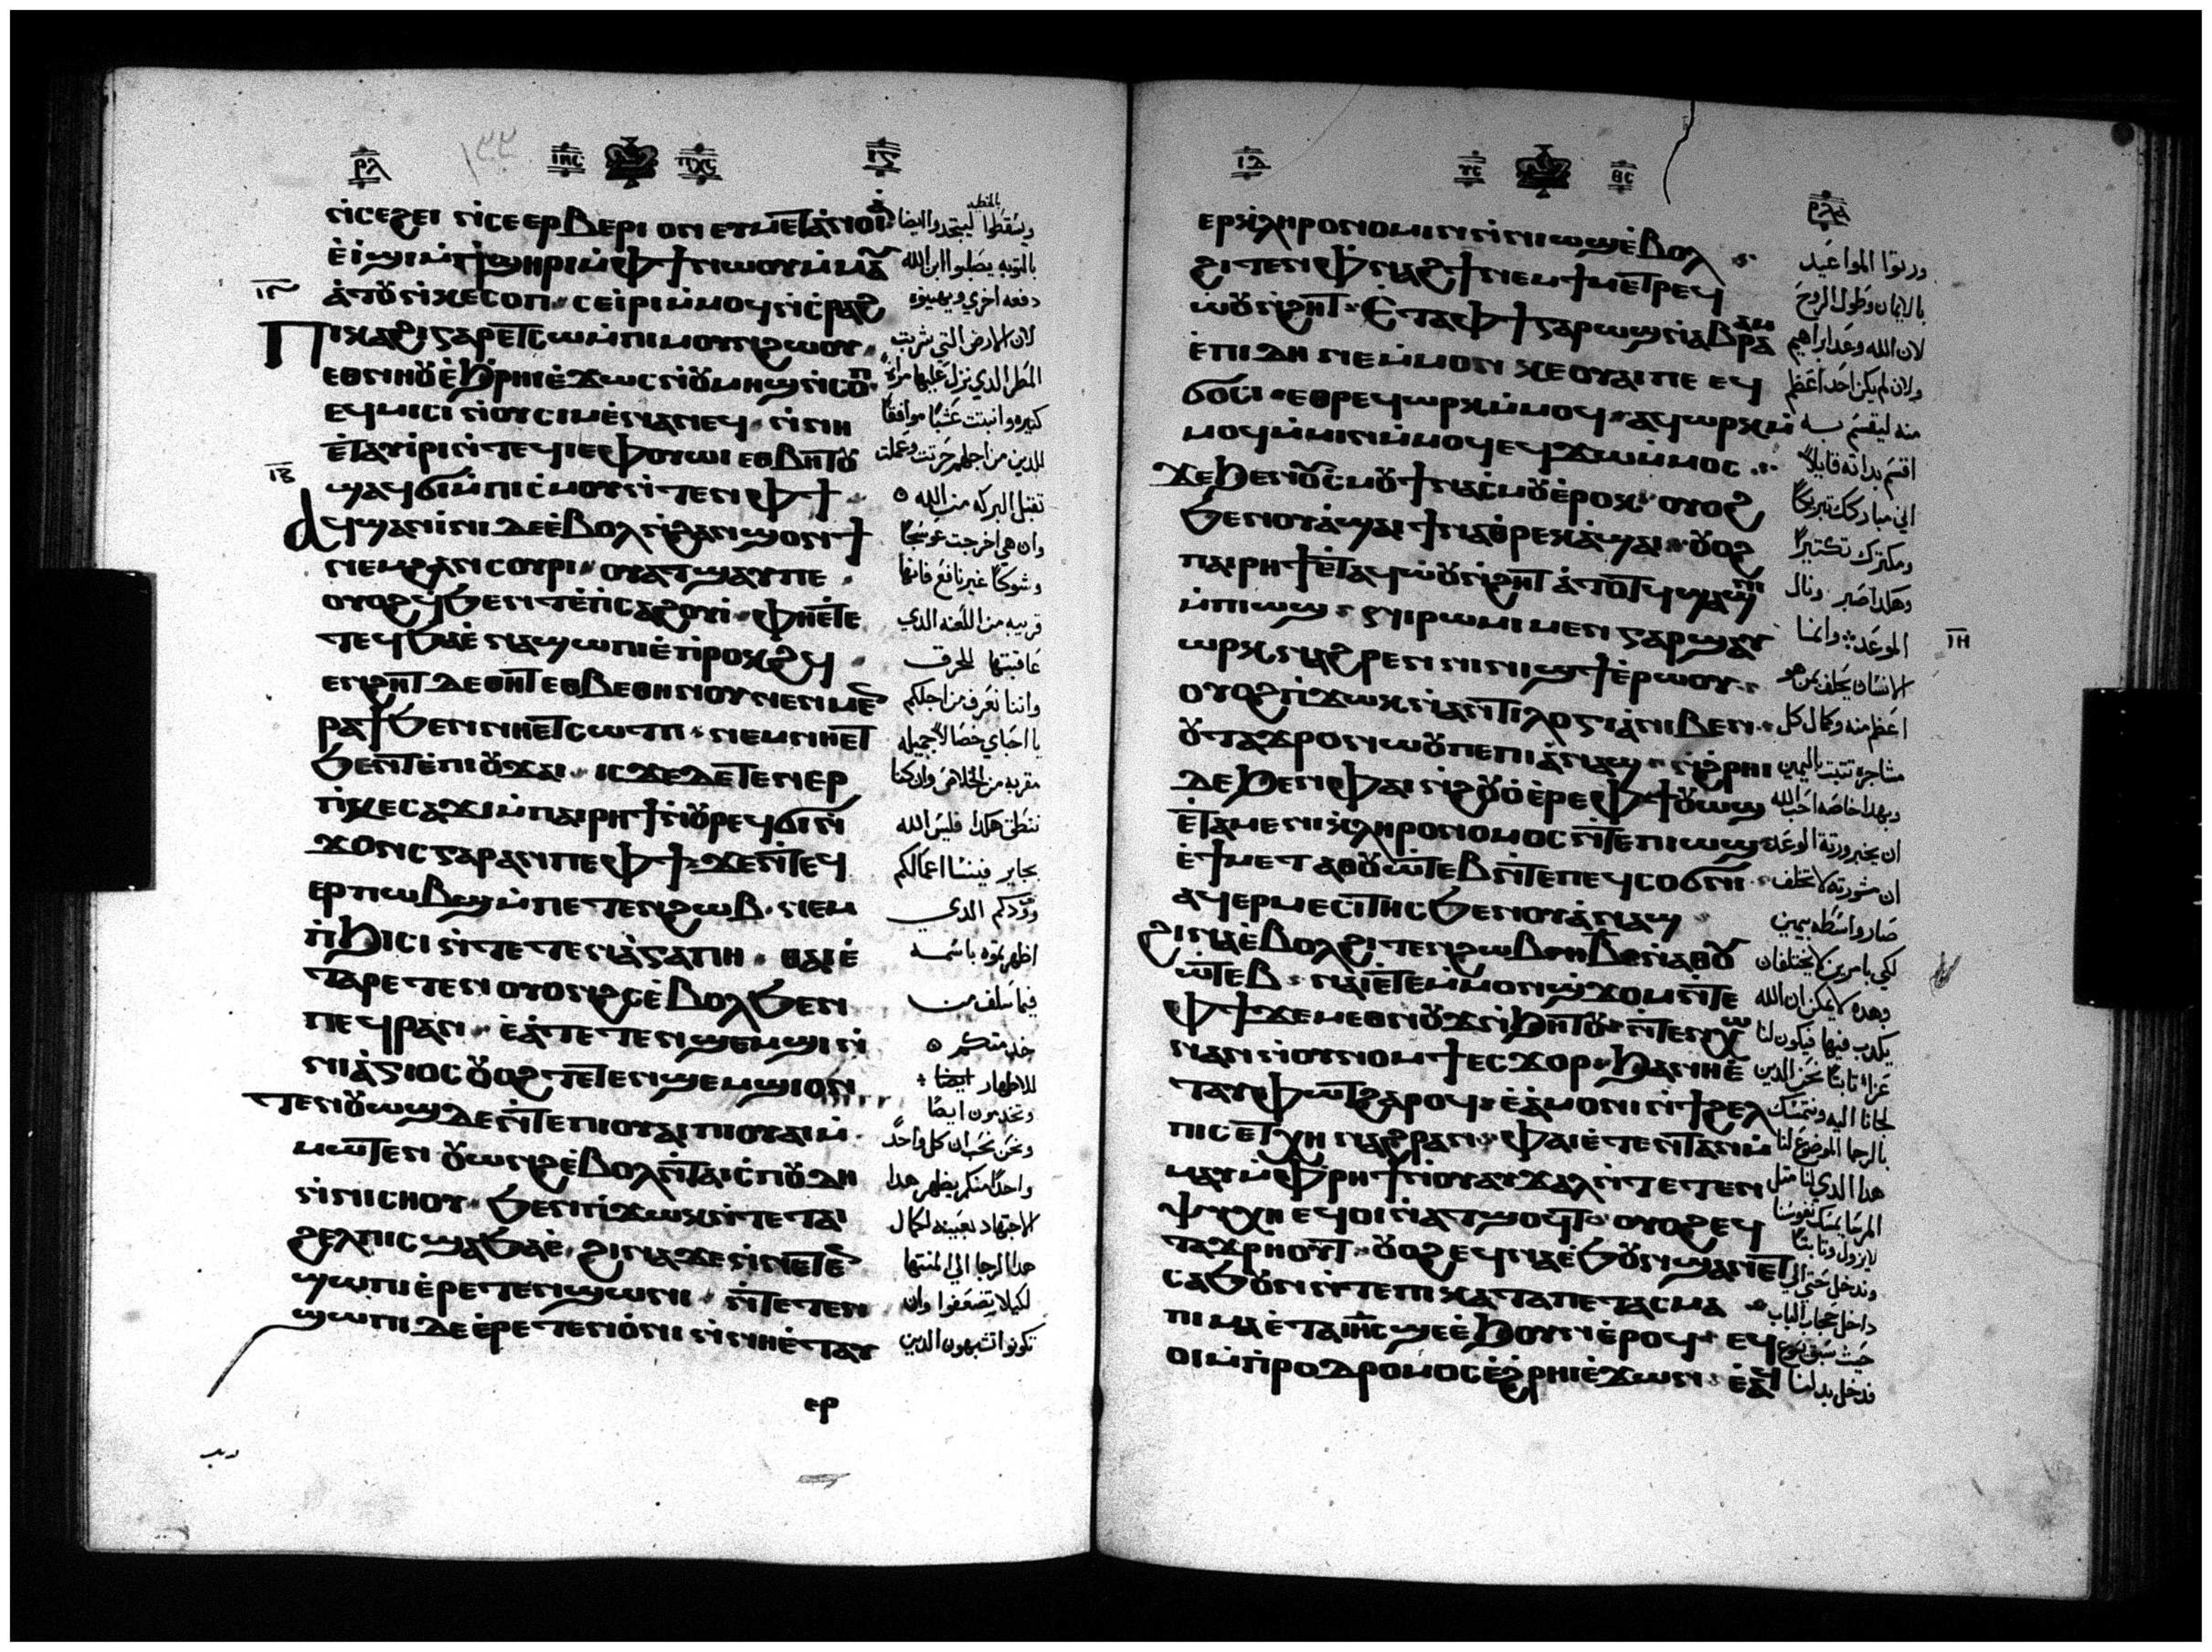 ⲣⲗ ⲓⲏⲥ ⲡⲭⲥ
ⲛ̀ⲥⲉϩⲉⲓ ⲛ̀ⲥⲉⲉⲣⲃⲉⲣⲓ ⲟⲛ ⲉⲩⲙⲉⲧⲁ̀ⲛⲟⲓⲁ̀
ⲉ̀ⲓ̀ϣⲓ ⲙ̀ⲡ̀ϣⲏⲣⲓ ⲙ̀ⲫϯ ⲛⲱⲟⲩ ⲙ̀ⲙⲁ
ⲁ̀ⲧⲟⲩ ⲛ̀ⲕⲉⲥⲟⲡ ⲥⲉⲓ̀ⲣⲓ ⲙ̀ⲙⲟϥ ⲛ̀ⲥ̀ⲣⲁϩ
ⲡⲓⲕⲁϩⲓ ⲅⲁⲣ ⲉⲧⲥⲱ ⲙ̀ⲡⲓⲙⲟⲩⲛϩⲱⲟⲩ
ⲉⲑⲛⲏⲟⲩ ⲉ̀ϧⲣⲏⲓ ⲉ̀ϫⲱϥ ⲛ̀ⲟⲩⲙⲏϣ ⲛ̀ⲥⲟⲡ
ⲉϥⲙⲓⲥⲓ ⲛ̀ⲟⲩⲥⲓⲙ ⲉ̀ⲛⲁⲛⲉϥ ⲛ̀ⲛⲏ
ⲉ̀ⲧⲁⲩⲓ̀ⲣⲓ ⲛ̀ⲧⲉϥⲓⲉⲫⲟⲩⲱⲓ ⲉⲑⲃⲏⲧⲟⲩ
ϣⲁϥϭⲓ ⲙ̀ⲡⲓⲥ̀ⲙⲟⲩ ⲛ̀ⲧⲉⲛ ⲫϯ
ⲁϥϣⲁⲛⲓ̀ⲛⲓ ⲇⲉ ⲉ̀ⲃⲟⲗ ⲛ̀ϩⲁⲛϣⲟⲛϯ
ⲛⲉⲙ ϩⲁⲛⲥⲟⲩⲣⲓ ⲟⲩⲁⲧϣⲁⲩ ⲡⲉ
ⲟⲩⲟϩ ϥ̀ϧⲉⲛⲧ ⲉ̀ⲡ̀ⲥⲁϩⲟⲩⲓ ⲫⲏⲉ̀ⲧⲉ
ⲧⲉϥϧⲁⲉ̀ ⲛⲁϣⲱⲡⲓ ⲉ̀ⲡ̀ⲣⲟⲕϩϥ
ⲉⲛϩⲏⲧ ⲇⲉ ⲑⲏⲧ ⲉⲑⲃⲉⲑⲏⲛⲟⲩ ⲛⲉⲛⲙⲉⲛ
ⲣⲁϯ ϧⲉⲛ ⲛⲏⲉⲧⲥⲱⲧⲡ ⲛⲉⲙ ⲛⲏⲉⲧ
ϧⲉⲛⲧ ⲉ̀ⲡⲓⲟⲩϫⲁⲓ ⲓⲥϫⲉ ⲇⲉ ⲧⲉⲛⲉⲣ
ⲡ̀ⲕⲉⲥⲁϫⲓ ⲙ̀ⲡⲁⲓⲣⲏϯ ⲛ̀ⲟⲩⲣⲉϥϭⲓ ⲛ̀
ϫⲟⲛⲥ ⲅⲁⲣ ⲁⲛ ⲡⲉ ⲫϯ ϫⲉ ⲛ̀ⲧⲉϥ
ⲉⲣⲡⲱⲃϣ ⲙ̀ⲡⲉⲧⲉⲛϩⲱⲃ ⲛⲉⲙ
ⲡ̀ϧⲓⲥⲓ ⲛ̀ⲧⲉⲧⲉⲛⲁ̀ⲅⲁⲡⲏ ⲑⲁⲓ ⲉ̀
ⲧⲁⲣⲉⲧⲉⲛⲟⲩⲟⲛϩⲥ ⲉ̀ⲃⲟⲗ ϧⲉⲛ
ⲡⲉϥⲣⲁⲛ ⲉ̀ⲁ̀ⲧⲉⲧⲉⲛϣⲉⲙϣⲓ ⲛ̀
ⲛⲓⲁ̀ⲅⲓⲟⲥ ⲟⲩⲟϩ ⲧⲉⲧⲉⲛϣⲉⲙϣⲓ ⲟⲛ
ⲧⲉⲛⲟⲩⲱϣ ⲇⲉ ⲛ̀ⲧⲉ ⲡⲓⲟⲩⲁⲓ ⲡⲓⲟⲩⲁⲓ ⲙ̀
ⲙⲱⲧⲉⲛ ⲟⲩⲱⲛϩ ⲉ̀ⲃⲟⲗ ⲛ̀ⲧⲁⲓⲥ̀ⲡⲟⲩⲇⲏ
ⲛ̀ⲛⲓⲥⲛⲏⲟⲩ ϧⲉⲛ ⲡ̀ϫⲱⲕ ⲛ̀ⲧⲉ ⲧⲁⲓ
ϩⲉⲗⲡⲓⲥ ϣⲁ ϧⲁⲉ̀ ϩⲓⲛⲁ ϫⲉ ⲛ̀ⲛⲉⲧⲉⲛ
ϣⲱⲡⲓ ⲉ̀ⲣⲉⲧⲉⲛϣⲱⲛⲓ ⲛ̀ⲧⲉⲧⲉⲛ
ϣⲱⲡⲓ ⲇⲉ ⲉ̀ⲣⲉⲧⲉⲛⲟ̀ⲛⲓ ⲛ̀ⲛⲏⲉ̀ⲧⲁⲩ
ⲉⲣ
ويسقطوا ليتجددوا ايضا
بالتوبه يصلبوا ابن الله
دفعه اخري ويهينوه
لان الارض التي شربت
المطر الذي نزل عليها مراة
كثيره وانبتت عشبًا موافقًا
للدين من اجلهم حرثت وعملت
تقبل البركه من الله
وان هي اخرجت عوسجًا
وشوكًا غير نافع فانها
قريبه من اللعنه الدي
عاقبتها للحرق
واننا نعرف من اجلكم
يا احباي خصالاً جميله
مقربه من الخلاص وان كنا
ننطق هكدا فليس الله
بجاير فينسا اعمالكم
وودكم الدي
اظهرتموه باسمه
فيما سلف من
للاطهار ايضا
وتخدمون ايضًا
ونحن نحب ان كل واحد
واحدًا منكم يظهر هدا
الاجتهاد بعينه لكمال
هدا الرجا الي المنتها
لكيلا تضعفوا وان
تكونوا تشبهون الدين
ⲓⲇ ⲩⲥ ⲑⲥ ⲣⲗⲁ
ⲉⲣⲕ̀ⲗⲏⲣⲟⲛⲟⲙⲓⲛ ⲛ̀ⲛⲓⲱϣ ⲉ̀ⲃⲟⲗ
ϩⲓⲧⲉⲛ ⲫ̀ⲛⲁϩϯ ⲛⲉⲙ ϯⲙⲉⲧⲣⲉϥ
ⲱⲟⲩⲛ̀ϩⲏⲧ ⲉ̀ⲧⲁ ⲫϯ ⲅⲁⲣ ⲱϣ ⲛ̀ⲁⲃⲣⲁⲁⲙ
ⲉ̀ⲡⲓⲇⲏ ⲛⲉ ⲙ̀ⲙⲟⲛ ⲕⲉⲟⲩⲁⲓ ⲡⲉ ⲉϥ
ϭⲟⲥⲓ ⲉⲑⲣⲉϥⲱⲣⲕ ⲙ̀ⲙⲟϥ ⲁϥⲱⲣⲕ ⲙ̀
ⲙⲟϥ ⲙ̀ⲙⲓⲛ ⲙ̀ⲙⲟϥ ⲉϥϫⲱ ⲙ̀ⲙⲟⲥ
ϫⲉ ϧⲉⲛ ⲟⲩⲥ̀ⲙⲟⲩ ϯⲛⲁⲥ̀ⲙⲟⲩ ⲉ̀ⲣⲟⲕ ⲟⲩⲟϩ
ϧⲉⲛ ⲟⲩⲁ̀ϣⲁⲓ ϯⲛⲁⲑⲣⲉⲕⲁ̀ϣⲁⲓ ⲟⲩⲟϩ
ⲡⲁⲓⲣⲏϯ ⲉ̀ⲧⲁϥⲱ̀ⲟⲩⲛ̀ϩⲏⲧ ⲁ̀ϥϯⲙⲁϯ
ⲙ̀ⲡⲓⲱϣ ⲛⲓⲣⲱⲙⲓ ⲙⲉⲛ ⲅⲁⲣ ϣⲁⲩ
ⲱⲣⲕ ⲙ̀ⲫⲏ ⲉⲧⲟⲓ ⲛ̀ⲛⲓϣϯ ⲉ̀ⲣⲱⲟⲩ
ⲟⲩⲟϩ ⲡ̀ϫⲱⲕ ⲛ̀ⲁⲛⲧⲓⲗⲟⲅⲓⲁ̀ ⲛⲓⲃⲉⲛ
ⲟⲩⲧⲁϫⲣⲟ ⲛⲱⲟⲩ ⲡⲉ ⲡⲓⲁ̀ⲛⲁϣ ⲛ̀ϩ̀ⲣⲏⲓ
ⲇⲉ ϧⲉⲛ ⲫⲁⲓ ⲛ̀ϩⲟⲩⲟ̀ ⲉ̀ⲣⲉ ⲫϯ ⲟⲩⲱϣ
ⲉ̀ⲧⲁⲙⲉ ⲛⲓⲕ̀ⲗⲏⲣⲟⲛⲟⲙⲟⲥ ⲛ̀ⲧⲉ ⲡⲓⲱϣ
ⲉ̀ϯⲙⲉⲧⲁⲑⲟⲩⲱⲧⲉⲃ ⲛ̀ⲧⲉ ⲡⲉϥⲥⲟϭⲛⲓ
ⲁϥⲉⲣⲙⲉⲥⲓⲧⲏⲥ ϧⲉⲛ ⲟⲩⲁ̀ⲛⲁϣ
ϩⲓⲛⲁ ⲉ̀ⲃⲟⲗ ϩⲓⲧⲉⲛ ϩⲱⲃ ⲃ̄ ⲛ̀ⲁⲑⲟⲩ
ⲱ̀ⲧⲉⲃ ⲛⲁⲓ ⲉ̀ⲧⲉ ⲙ̀ⲙⲟⲛ ϣϫⲟⲙ ⲛ̀ⲧⲉ
ⲫϯ ϫⲉⲙⲉⲑⲛⲟⲩϫ ⲛ̀ϧⲏⲧⲟⲩ ⲛ̀ⲧⲉⲛϣⲱ
ⲛⲁⲛ ⲛ̀ⲟⲩⲛⲟⲙϯ ⲉⲥϫⲟⲣ ϧⲁ ⲛⲏⲉ̀
ⲧⲁⲩⲫⲱⲧ ϩⲁⲣⲟϥ ⲉ̀ⲁ̀ⲙⲟⲛⲓ ⲛ̀ϯϩⲉⲗ
ⲡⲓⲥ ⲉⲧⲭⲏ ⲛⲁϩⲣⲁⲛ ⲫⲁⲓ ⲉ̀ⲧⲉⲛⲧⲁⲛ ⲙ̀
ⲙⲁⲩ ⲙ̀ⲫ̀ⲣⲏϯ ⲛ̀ⲟⲩⲁⲩϫⲁⲗ ⲛ̀ⲧⲉ ⲧⲉⲛ
ⲯⲩⲭⲏ ⲉϥⲟⲓ ⲛ̀ⲁⲧϣⲟϥⲧ ⲟⲩⲟϩ ⲉϥ
ⲧⲁϫⲣⲏⲟⲩⲧ ⲟⲩⲟϩ ⲉϥⲛⲁ ⲉ̀ϧⲟⲩⲛ ϣⲁ ⲛⲓⲉⲧ
ⲥⲁϧⲟⲩⲛ ⲛ̀ⲧⲉ ⲡⲓⲕⲁⲧⲁⲡⲉⲧⲁⲥⲙⲁ
ⲡⲓⲙⲁ ⲉ̀ⲧⲁ ⲓⲏⲥ ϣⲉ ⲉ̀ϧⲟⲩⲛ ⲉ̀ⲣⲟϥ ⲉϥ
ⲟⲓ ⲙ̀ⲡ̀ⲣⲟⲇⲣⲟⲙⲟⲥ ⲉ̀ϩ̀ⲣⲏⲓ ⲉ̀ϫⲱⲛ ⲉ̀ⲁϥ
ورثوا المواعيد
بالايمان وطول الروح
لان الله وعد ابراهيم
ولان لم يكن احد اعظم
منه ليقسم به
اقسم بداته قايلاً
اني مباركك تبريكًا
ومكثرك تكثيرًا
وهكدا صبر ونال
الموعد وانما
الانسان يحلف بمن هو
اعظم منه وكمال كل
مشاجره تتبت باليمين
وبهدا خاصه احب الله
ان يخبر ورثة الوعد
ان مشورته لا تخلف
صار واسطه بيمين
لكي بامرين لا يختلفان
وهده لا يمكن ان الله
يكدب فيها فيكون لنا
عزاء ثابتًا نحن الدين
لجانا اليه ونتمسك
بالرجا الموضوع لنا
هدا الدي لنا مثل
المرسا يمسك نفوسنا
لا يزول وثابتًا
وتدخل حتي الي
داخل حجاب الباب
حيث سبق يسوع
فدخل بدلنا